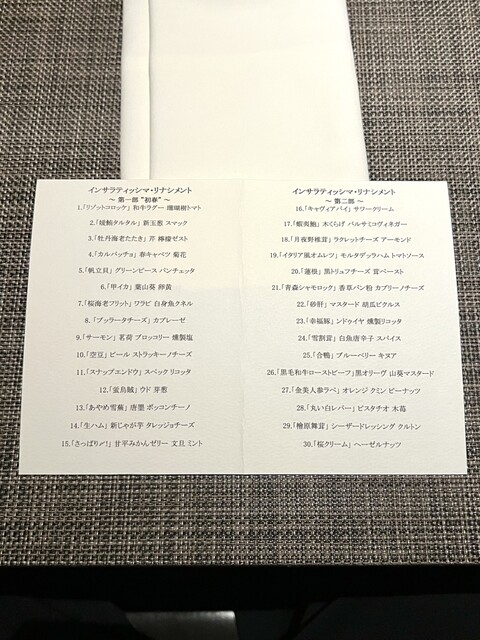 インサラティッシマ・リナシメント
～ 第一部 "初春" ～
1.「リゾットコロッケ」 和牛ラグー 珊瑚樹トマト
2.「縞鯵タルタル」 新玉葱 スマック
3.「牡丹海老たたき」 芹 檸檬ゼスト
4.「カルパッチョ」 春キャベツ 菊花
5.「帆立貝」 グリーンピース パンチェッタ
6.「甲イカ」 葉山葵 卵黄
7.「桜海老フリット」 ワラビ 白身魚クネル
8.「ブッラータチーズ」 カプレーゼ
9.「サーモン」 茗荷 ブロッコリー 燻製塩
10.「空豆」 ビール ストラッキーノチーズ
11.「スナップエンドウ」 スペック リコッタ
12.「蛍烏賊」 ウド 芽葱
13.「あやめ雪蕪」 唐墨 ボッコンチーノ
14.「生ハム」 新じゃが芋 タレッジョチーズ
15.「さっぱり〆!」 甘平みかんゼリー 文旦 ミント
インサラティッシマ・リナシメント
～ 第二部 ～
16.「キャヴィアパイ」 サワークリーム
17.「蝦夷鮑」 木くらげ バルサミコヴィネガー
18.「月夜野椎茸」 ラクレットチーズ アーモンド
19.「イタリア風オムレツ」 モルタデッラハム トマトソース
20.「蓮根」 黒トリュフチーズ 茸ペースト
21.「青森シャモロック」 香草パン粉 カプリーノチーズ
22.「砂肝」 マスタード 胡瓜ピクルス
23.「幸福豚」 ンドゥイヤ 燻製リコッタ
24.「雪割茸」 白魚唐辛子 スパイス
25.「合鴨」 ブルーベリー キヌア
26.「黒毛和牛ローストビーフ」 黒オリーヴ 山葵マスタード
27.「金美人参ラペ」 オレンジ クミン ピーナッツ
28.「丸い白レバー」 ピスタチオ 木苺
29.「檜原舞茸」 シーザードレッシング クルトン
30.「桜クリーム」 ヘーゼルナッツ